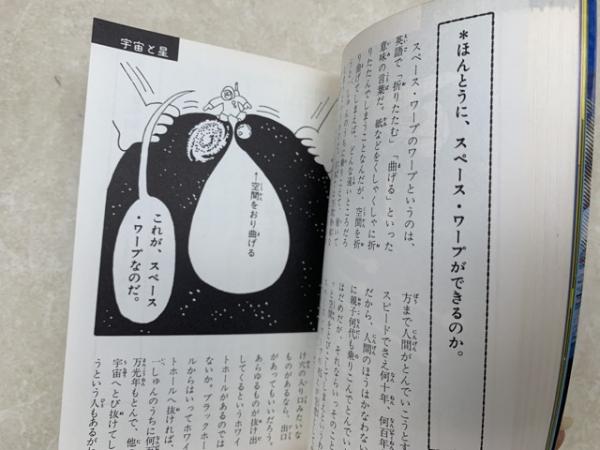 ＊ほんとうに、スペース・ワープができるのか。
スペース・ワープのワープというのは、
英語で「折りたたむ」「曲げる」といった
意味の言葉だ。紙などをくしゃくしゃに折
りたたんでしまうことなんだが、空間を折
り曲げてしまえば、どんな遠いところだろ
方まで人間がとんでいこうとす
スピードでさえ何十年、何百年
だから、人間のほうはかなわない
に親子何代も乗りこんでとんでい
はだめだが、それならいっそのこと
宇宙と星
↑空間をおり曲げる
これが、スペース
・ワープなのだ。
け穴の入り口みたいな
ものがあるなら、出口
があってもいいだろう。
あらゆるものが抜け出
してくるというホワイ
トホールがあるのでは
ないか。ブラックホー
ルからはいってホワイ
トホールへ抜ければ、
一しゅんのうちに何百
万光年もとんで、他
宇宙へとび抜けてし
うという人もあるが